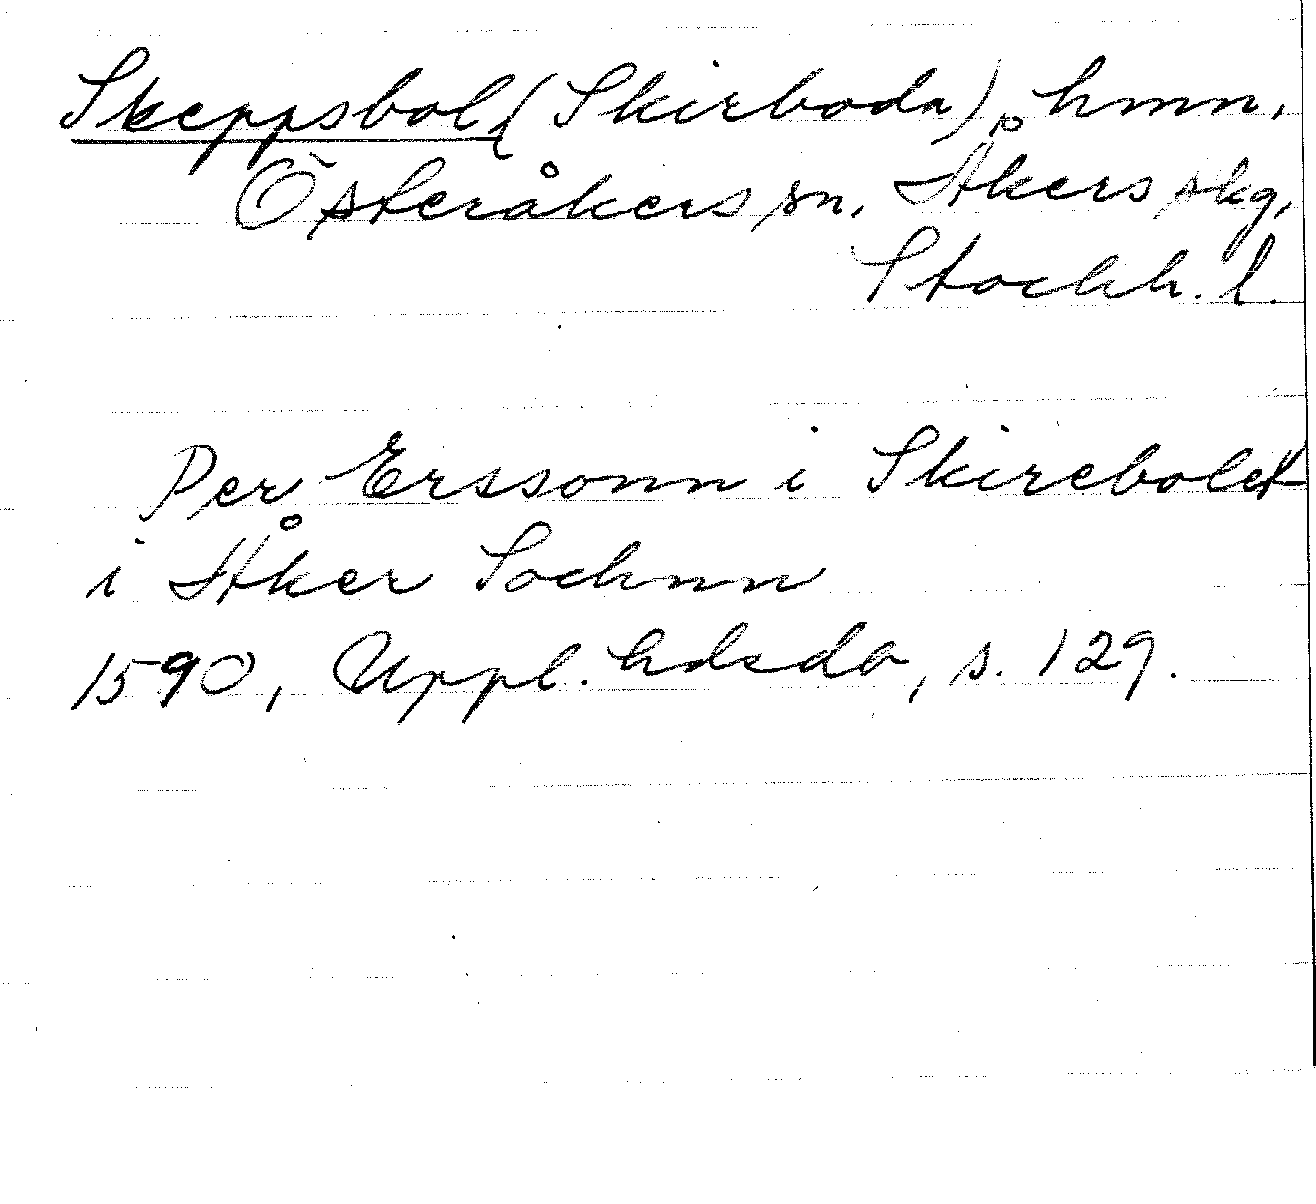 Skeppsbol (Skirboda), hmn,
Österåkers sn, Åkers skg,
Stockh. l.
Per Erssonn i Skirebolet
i Åker Sochnn
1590, Uppl. hdsdb, s. 129.